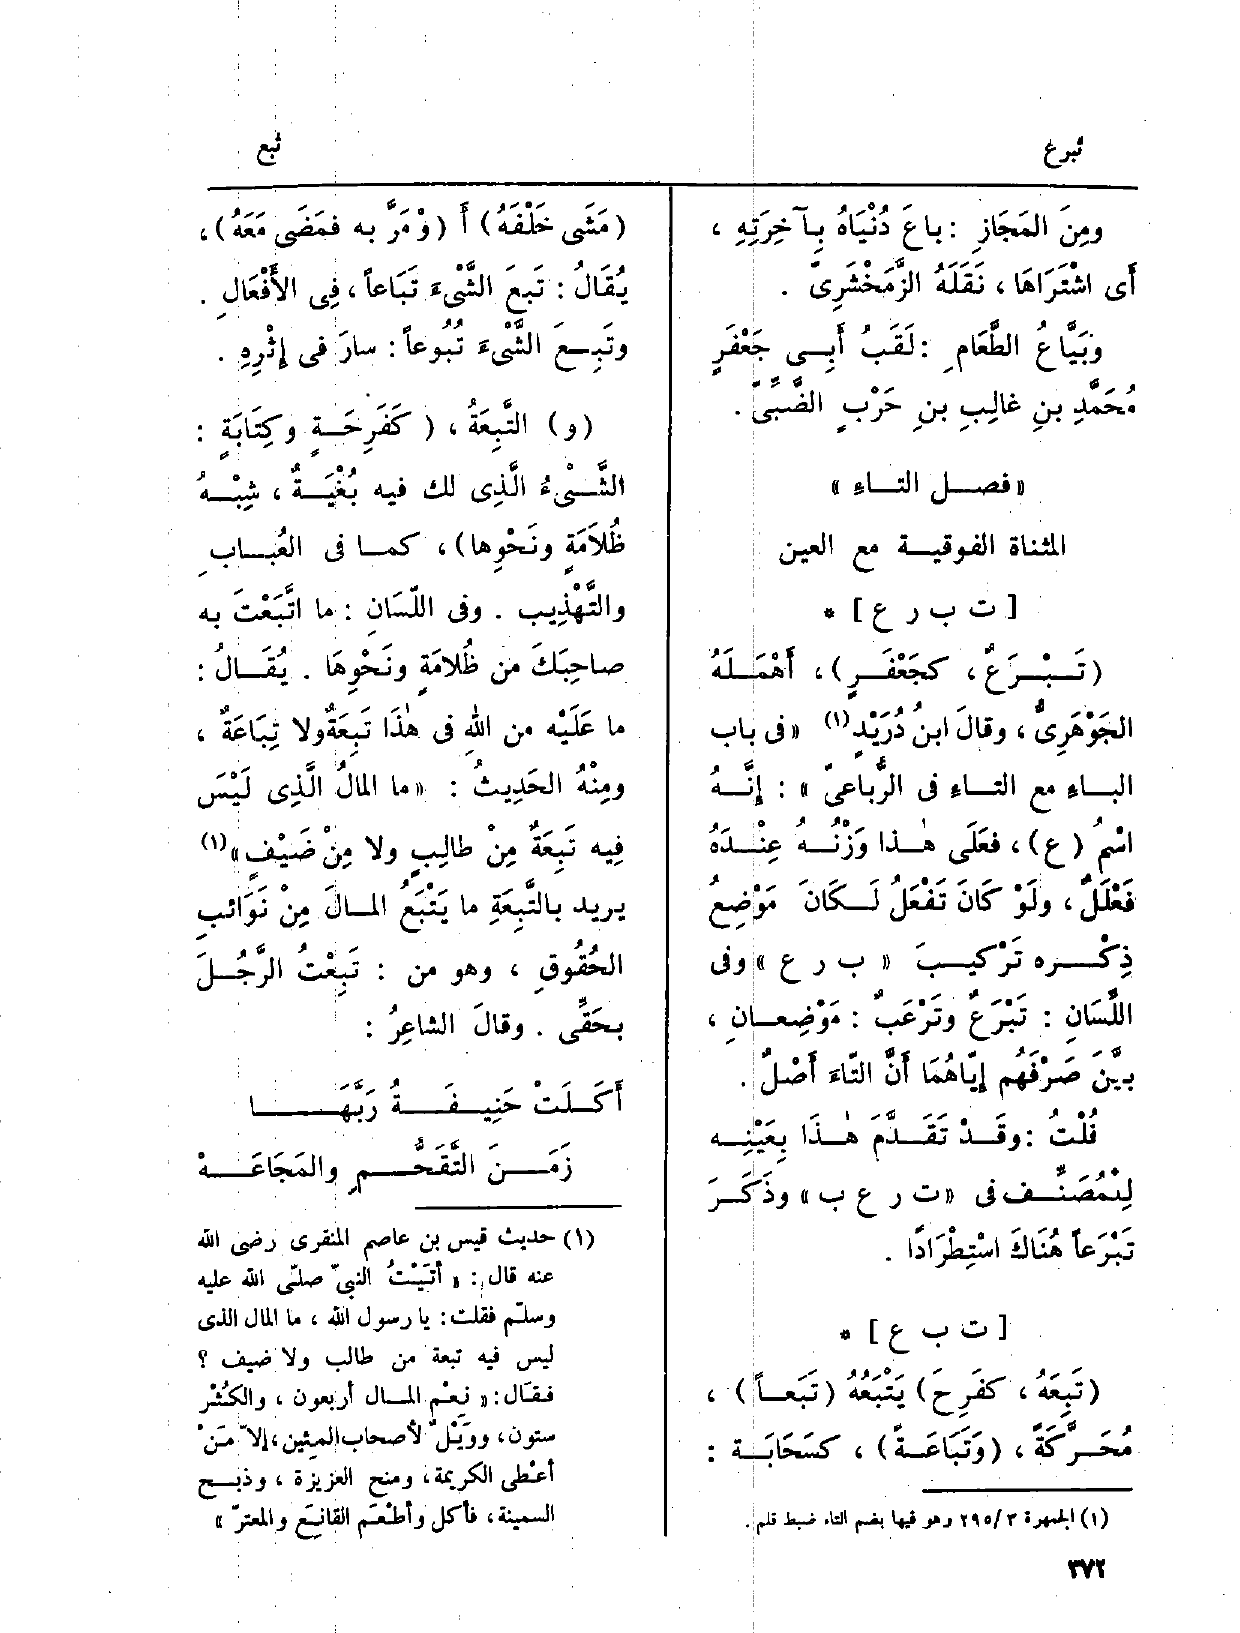 تبرع
تبع
ومِنَ المَجَازِ : باعَ دُنْيَاهُ بِآخِرَتِهِ ،
أَى اشْتَرَاهَا ، نَقَلَهُ الزَّمَخْشَرِىّ .
وبَيَّاعُ الطَّعَامِ : لَقَبُ أَبِــى جَعْفَرٍ
مُحَمَّدِ بنِ غالِبِ بنِ حَرْبٍ الضَّبِّىِّ .
« فصــل التــاء »
المثناة الفوقيــة مع العين
[ ت ب ر ع ] *
(تَــبْــرَعٌ ، كجَعْفَــرٍ) ، أَهْمَــلَهُ
الجَوْهَرِىُّ ، وقالَ ابنُ دُرَيْدٍ (١) « فى باب
البــاءِ مع التــاءِ فى الرُّباعىّ » : إِنَّــهُ
اسْمُ (ع) ، فعَلَى هٰــذا وَزْنُــهُ عِنْــدَهُ
فَعْلَلٌ ، ولَوْ كَانَ تَفْعَلُ لَــكَانَ مَوْضِعُ
ذِكْــرِه تَرْكيــبَ « ب ر ع » وفى
اللِّسَانِ : تَبْرَعٌ وتَرْعَبٌ : مَوْضِعــانِ ،
بيَّنَ صَرْفُهُم إِيّاهُمَا أَنَّ التّاءَ أَصْلٌ .
قُلْتُ : وقَــدْ تَقَــدَّمَ هٰــذَا بِعَيْنِــه
لِلْمُصَنِّــف فى « ت ر ع ب » وذَكَــرَ
تَبْرَعاً هُنَاكَ اسْتِطْرَادًا .
[ ت ب ع ] *
(تَبِعَهُ ، كفَرِحَ) يَتْبَعُهُ (تَبَعــاً) ،
مُحَــرَّكَةً ، (وَتَبَاعَــةً) ، كسَحَابَــة :
(١) الجمهرة ٢٩٥/٣ وهو فيها بضم التاء ضبط قلم .
(مَشَى خَلْفَهُ) أَ (وْ مَرَّ به فمَضَى مَعَهُ) ،
يُقَالُ : تَبِعَ الشَّىْءَ تَبَاعاً ، فِى الأَفْعَالِ .
وتَبِــعَ الشَّىْءَ تُبُوعاً : سارَ فى إِثْرِهِ .
(و) التَّبِعَةُ ، (كَفَرِحَــةٍ وكِتَابَةٍ :
الشَّــىْءُ الَّذِى لك فيه بُغْيَــةٌ ، شِبْــهُ
ظُلَامَةٍ ونَحْوِها) ، كمــا فى العُبَــابِ
والتَّهْذِيبِ . وفى اللِّسَانِ : ما اتَّبَعْتَ به
صاحِبَكَ من ظُلَامَةٍ ونَحْوِهَا . يُقَــالُ :
ما عَلَيْه من اللهِ فى هٰذَا تَبِعَةٌ ولا تِبَاعَةٌ ،
ومِنْهُ الحَدِيثُ : « ما المَالُ الَّذِى لَيْسَ
فِيه تَبِعَةٌ مِنْ طالِبٍ ولا مِنْ ضَيْفٍ » (١)
يريد بالتَّبِعَةِ ما يَتْبَعُ المــالَ مِنْ نَوَائبِ
الحُقُوقِ ، وهو من : تَبِعْتُ الرَّجُــلَ
بحَقِّى . وقالَ الشاعِرُ :
أَكَــلَتْ حَنِيــفَــةُ رَبَّهَــا
زَمَــنَ التَّقَحُّــمِ والمَجَاعَــهْ
(١) حديث قيس بن عاصم المنقرى رضى الله
عنه قال : « أتَيْتُ النبىّ صلّى الله عليه
وسلّم فقلت : يا رسول الله ، ما المال الذى
ليس فيه تبعة من طالب ولا ضيف ؟
فقــال : « نِعْم المــال أربعون ، والكُثْر
ستون ، ووَيْلٌ لأصحاب المئين ، إلاّ مَنْ
أعْطى الكريمة ، ومنح الغزيرة ، وذبــح
السمينة ، فأكل وأطْعَم القانِعَ والمعترّ »
٣٧٢